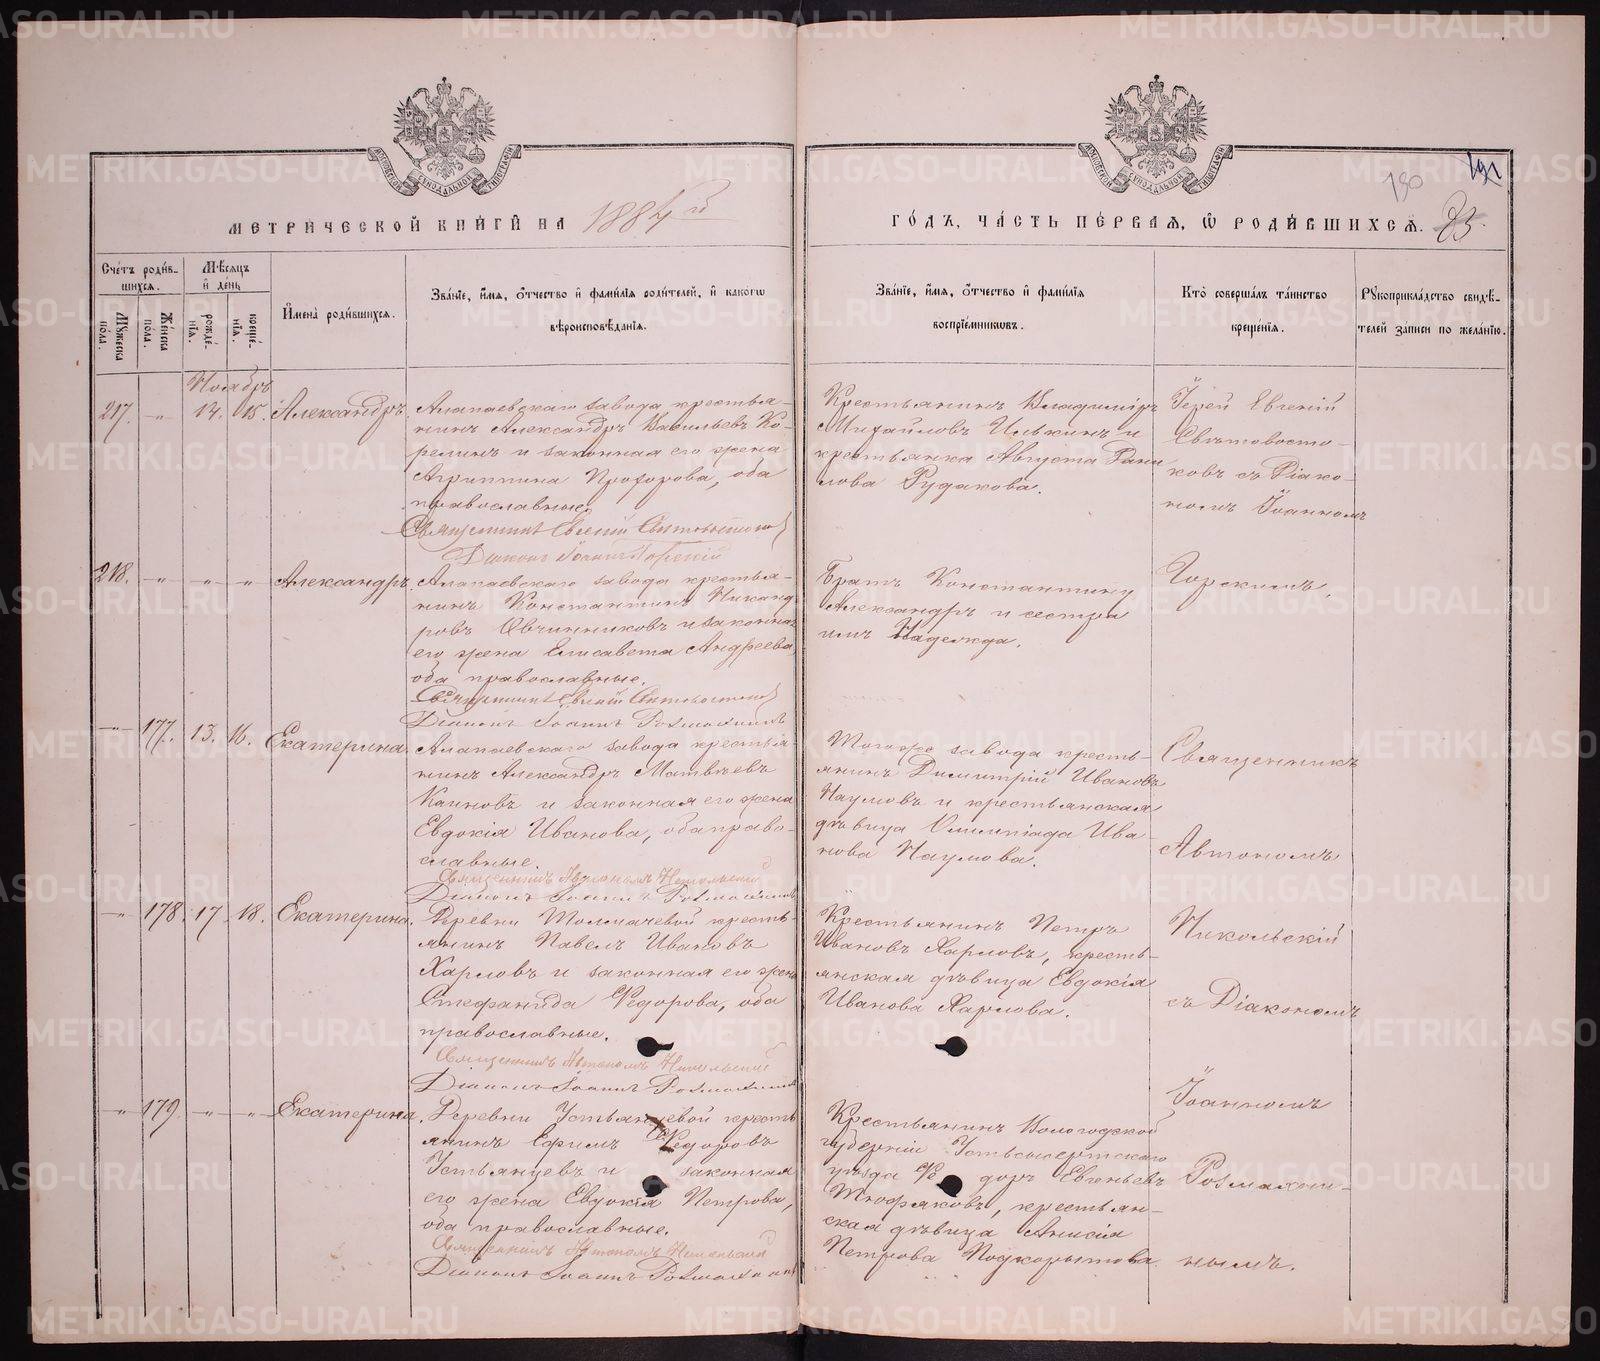 МЕТРИЧЕСКОЙ КНИГИ НА 1884й
ГОДЪ, ЧАСТЬ ПЕРВАЯ, Ѡ РОДИВШИХСЯ.
190
191
Счетъ родившихся.
Мужеска пола.
Женска пола.
Мѣсяцъ и день
рожденія.
крещенія.
Имена родившихся.
Званіе, имя, отчество и фамилія родителей, и какогѡ
вѣроисповѣданія.
Званіе, имя, отчество и фамилія
воспріемникѡвъ.
Кто совершалъ таинство
крещенія.
Рукоприкладство свидѣ-
телей записи по желанію.
Ноябрь
217. " 14. 15. Александръ.
Алапаевскаго завода крестья-
нинъ Александръ Васильевъ Ко-
релинъ и законная его жена
Агриппина Прохорова, оба
православные.
Священникъ Евгеній
Діаконъ Іоаннъ Горскій
Крестьянинъ Владиміръ
Михайловъ Илькинъ и
крестьянка Августа Дани
лова Рудакова.
Іерей Евгеній
Свѣтовосто-
ковъ съ Діако-
номъ Іоанномъ
218. " " " Александръ.
Алапаевскаго завода крестья-
нинъ Константинъ Никанд
ровъ Овчинниковъ и законная
его жена Елисавета Андреева,
оба православные.
Священникъ Евгеній
Діаконъ Іоаннъ
Братъ Константину
Александръ и сестра
имъ Надежда.
Горскимъ.
" 177. 13. 16. Екатерина.
Алапаевскаго завода крестья
нинъ Александръ Матвѣевъ
Каиновъ и законная его жена
Евдокія Иванова, оба право-
славные.
Священникъ Автономъ Никольский
Діаконъ Іоаннъ
Тогоже завода кресть-
янинъ Димитрій Ивановъ
Наумовъ и крестьянская
дѣвица Олимпіада Ива-
нова Наумова.
Священникъ
Автономъ
" 178. 17 18. Екатерина.
Деревни Толмачевой кресть-
янинъ Павелъ Ивановъ
Харловъ и законная его жена
Стефанида Ѳедорова, оба
православные.
Священникъ Автономъ Никольский
Діаконъ Іоаннъ
Крестьянинъ Петръ
Ивановъ Харловъ, кресть-
янская дѣвица Евдокія
Иванова Харлова.
Никольскій
съ Діакономъ
" 179. " " Екатерина.
Деревни Устьянцевой кресть
янинъ Ефимъ Ѳедоровъ
Устьянцевъ и законная
его жена Евдокія Петрова,
оба православные.
Священникъ Автономъ Никольский
Діаконъ Іоаннъ
Крестьянинъ Вологодской
губерніи
уѣзда Ѳедоръ Евгеньевъ
крестьян-
ская дѣвица Анисія
Петрова Подкорытова
Іоанномъ
Розмахни-
нымъ.
METRIKI.GASO-URAL.RU